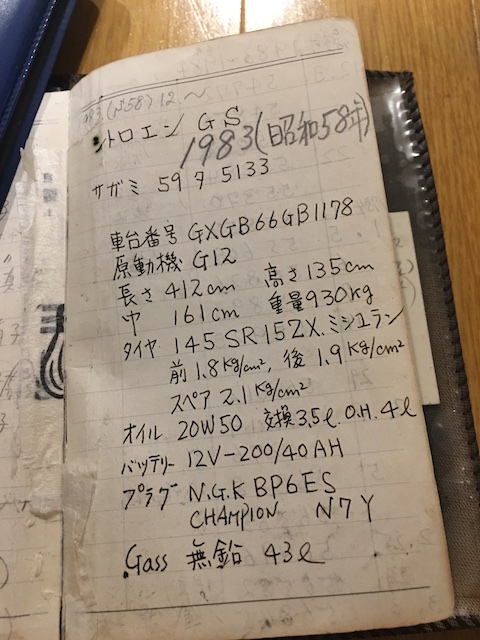 1983(S58)12.~
シトロエン GS
1983(昭和58年)
サガミ 59 タ 5133
車台番号 GXGB66GB1178
原動機 G12
長さ 412cm 高さ 135cm
巾 161cm 重量 930kg
タイヤ 145 SR 15ZX. ミシエラン
前 1.8 kg/cm², 後 1.9 kg/cm²
スペア 2.1 kg/cm²
オイル 20W50 交換 3.5ℓ. O.H. 4ℓ
バッテリー 12V-200/40AH
プラグ N.G.K BP6ES
CHAMPION N7Y
Gass 無鉛 43ℓ